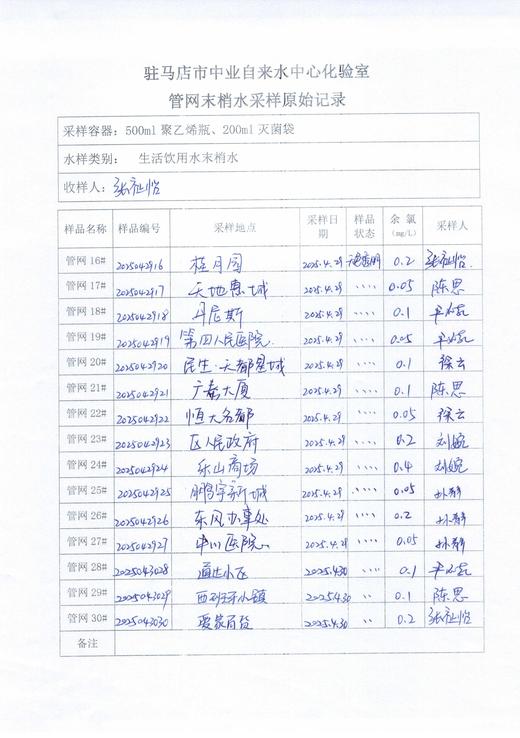 驻马店市中业自来水中心化验室
管网末梢水采样原始记录
采样容器：500ml 聚乙烯瓶、200ml 灭菌袋
水样类别： 生活饮用水末梢水
收样人：张祉怡
样品名称 样品编号 采样地点 采样日期 样品状态 余氯(mg/L) 采样人
管网 16# 2025042916 桂月园 2025.4.29 无色透明 0.2 张祉怡
管网 17# 2025042917 天地惠城 2025.4.29 〃〃 0.05 陈思
管网 18# 2025042918 丹尼斯 2025.4.29 〃〃 0.1
管网 19# 2025042919 第四人民医院 2025.4.29 〃〃 0.05
管网 20# 2025042920 民生·天都星城 2025.4.29 〃〃 0.1 徐云
管网 21# 2025042921 广泰大厦 2025.4.29 〃〃 0.1 陈思
管网 22# 2025042922 恒大名都 2025.4.29 〃〃 0.05 徐云
管网 23# 2025042923 区人民政府 2025.4.29 〃〃 0.2 刘婉
管网 24# 2025042924 乐山商场 2025.4.29 〃〃 0.4 刘婉
管网 25# 2025042925 鹏宇新城 2025.4.29 〃〃 0.05
管网 26# 2025042926 东风办事处 2025.4.29 〃〃 0.2
管网 27# 2025042927 中心医院 2025.4.29 〃〃 0.05
管网 28# 2025043028 通达小区 2025.4.30 〃 0.1
管网 29# 2025043029 西班牙小镇 2025.4.30 〃 0.1 陈思
管网 30# 2025043030 2025.4.30 〃 0.2 张祉怡
备注